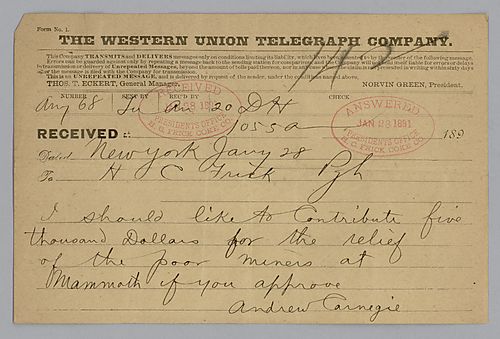 Form No. 1.
THE WESTERN UNION TELEGRAPH COMPANY.
This Company TRANSMITS and DELIVERS messages only on conditions limiting its liability, which have been assented to by the sender of the following message.
Errors can be guarded against only by repeating a message back to the sending station for comparison, and the Company will not hold itself liable for errors or delays
in transmission or delivery of Unrepeated Messages,
after the message is filed with the Company for transmission.
This is an UNREPEATED MESSAGE, and is delivered by request of the sender, under the conditions named above.
THOS. T. ECKERT, General Manager. NORVIN GREEN, President.
NUMBER SENT BY REC'D BY CHECK
68 20 DH
RECEIVED at 1055a 189
Dated New York Jany 28
To H C Frick Pgh
I should like to Contribute five
thousand Dollars for the relief
of the poor miners at
Mammoth if you approve
Andrew Carnegie
RECEIVED
PRESIDENTS OFFICE
H. C. FRICK COKE CO.
ANSWERED
JAN 28 1891
PRESIDENTS OFFICE
H. C. FRICK COKE CO.